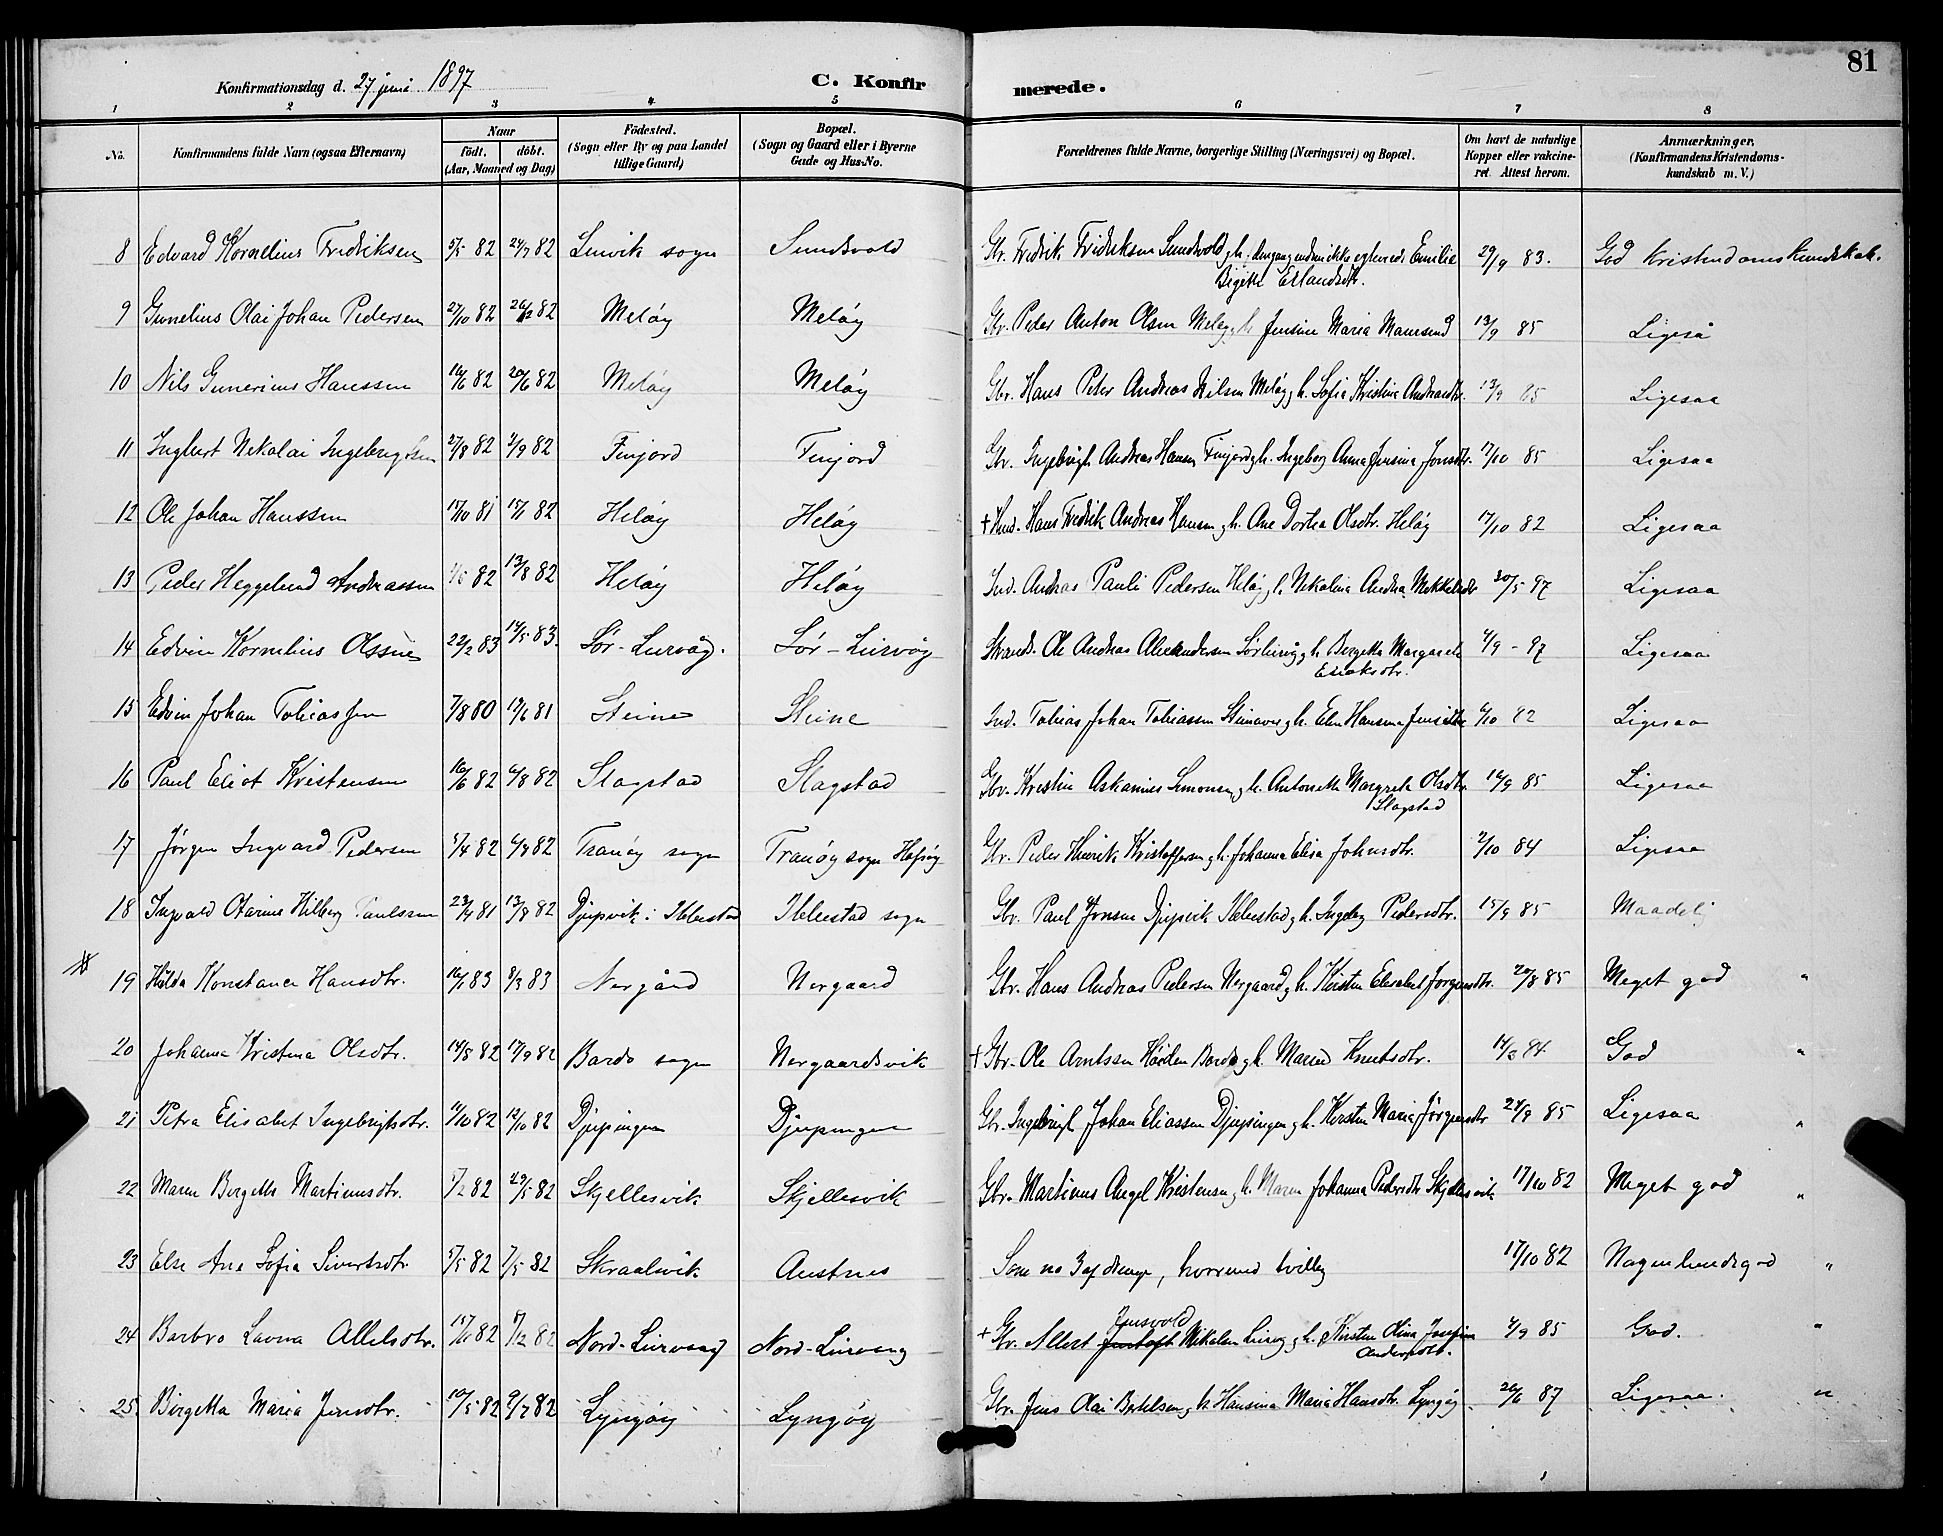 81
Konfirmationsdag d. 27 juni 1897 C. Konfirmerede.
1 2 3 4 5 6 7 8
No. Konfirmandens fulde Navn (ogsaa Efternavn) Naar födt. döbt. (Aar, Maaned og Dag) Födested. (Sogn eller By og paa Landet tillige Gaard) Bopæl. (Sogn og Gaard eller i Byerne Gade og Hus-No. Forældrenes fulde Navne, borgerlige Stilling (Næringsvei) og Bopæl. Om havt de naturlige Kopper eller vakcineret. Attest herom. Anmærkninger. (Konfirmandens Kristendomskundskab m. V.)
8 Edvard Kornelius Fredriksen 5/5 82 24/7 82 Lenvik sogn Sundvold Gbr. Fredrik Fridriksen Sundvold g h. Emilie Birgitte Erlandsdtr. 29/9 83. God Kristendomskundskab.
9 Gunelius Olai Johan Pedersen 27/10 82 26/12 82 Meløy Meløy Gbr. Peder Anton Olsen Meløy g h. Jensine Maria 13/9 85 Ligeså
10 Nils Gunerius Hanssen 16/6 82 20/6 82 Meløy Meløy Gbr. Hans Peter Andreas Nilsen Meløy g h. Sofia Kristina Andreasdtr. 13/9 85 Ligesaa
11 Ingbert Nekolai Ingebrigtsen 27/8 82 2/9 82 Finjord Finjord Gbr. Ingebrigt Andreas Hansen Finjord g h. Ingeborg Anna Jensina Jonsdtr. 17/10 85 Ligesaa
12 Ole Johan Hanssen 15/10 81 15/1 82 Heløy Heløy + Ind. Hans Fredrik Andreas Hansen g h. Ane Dortea Olsdtr. Heløy 17/10 82 Ligesaa
13 Peder Heggelund Andreassen 82 13/8 82 Heløy Heløy Ind. Andreas Pauli Pedersen Heløy g h. Nekolina Andrea Mikkelsdtr 30/5 97 Ligesaa
14 Edvin Kornelius Olssen 22/2 83 14/5 83. Sør-Lurvåg. Sør-Lurvåg Strands. Ole Andreas Alexandersen g h. Bergitta Margareta 4/9 - 97 Ligesaa
15 Edvin Johan Tobiassen 7/8 80 19/6 81 Steine Steine Ind. Tobias Johan Tobiassen g h. Elen Hansena 82 Ligesaa
16 Paul Eliot Kristensen 16/6 82 6/8 82 Slagstad Slagstad Gbr. Kristen Askanius Simonsen g h. Antonette Margrete Olsdtr. Slagstad 14/9 85 Ligesaa
17 Jørgen Ingvard Pedersen 5/4 82 6/8 82 Tranøy sogn Tranøy sogn Hofsøy Gbr. Peder Henrik Kristoffersen g h. Johanna Elisa Johnsdtr. 2/10 84 Ligesaa
18 Ingvald Otarius Hilberg Paulssen 81 13/8 82 Djupvik i Ibbestad Ibbestad sogn Gbr. Paul Jonsen Djupvik Ibbestad g h. Ingeborg Pedersdtr. 15/9 85 Maadelig
19 Hilda Konstance Hansdtr. 16/1 83 8/3 83 Nergård Nergaard Gbr. Hans Andreas Pedersen Nergaard g h. Kirsten Elisabet Jørgensdtr. 20/8 85 Meget god "
20 Johanna Kristina Olsdtr. 14/8 82 17/9 82 Bardo sogn Nergaardsvik + Gbr. Ole Arntssen Bardo g h. Maren Knutsdtr. 84 God "
21 Petra Elisabet Ingebrigtsdtr. 4/10 82 12/10 82 Djupingen Djupingen Gbr. Ingebrigt Johan Eliassen Djupingen g h. Kirsten Maria Jørgensdtr 24/9 85 Ligesaa "
22 Maren Bergitte Martinusdtr. 5/2 82 29/5 82 Skjellesvik Skjellesvik Gbr. Martinus Angel Kristensen g h. Maren Johanna Pedersdtr Skjellesvik 17/10 82 Meget god "
23 Else Ane Sofia Sivertsdtr 5/5 82 7/5 82 Skraalvik Austnes Som no 3 af drenge, hvormed tvilling 17/10 82 Nogenlunde god "
24 Barbro Lavina Allelsdtr. 15/11 82 8/12 82 Nord-Lurvaag Nord-Lurvaag + Gbr. Allert Jensvold Nikolaisen g h. Kirsten Olina Josefine Andersdtr. 4/9 85 God. "
25. Birgetta Maria Jensdtr. 10/5 82 9/7 82 Lyngøy Lyngøy Gbr. Jens Olai Bertelsen g h. Hansina Maria Hansdtr. Lyngøy 26/6 87 Ligesaa. "